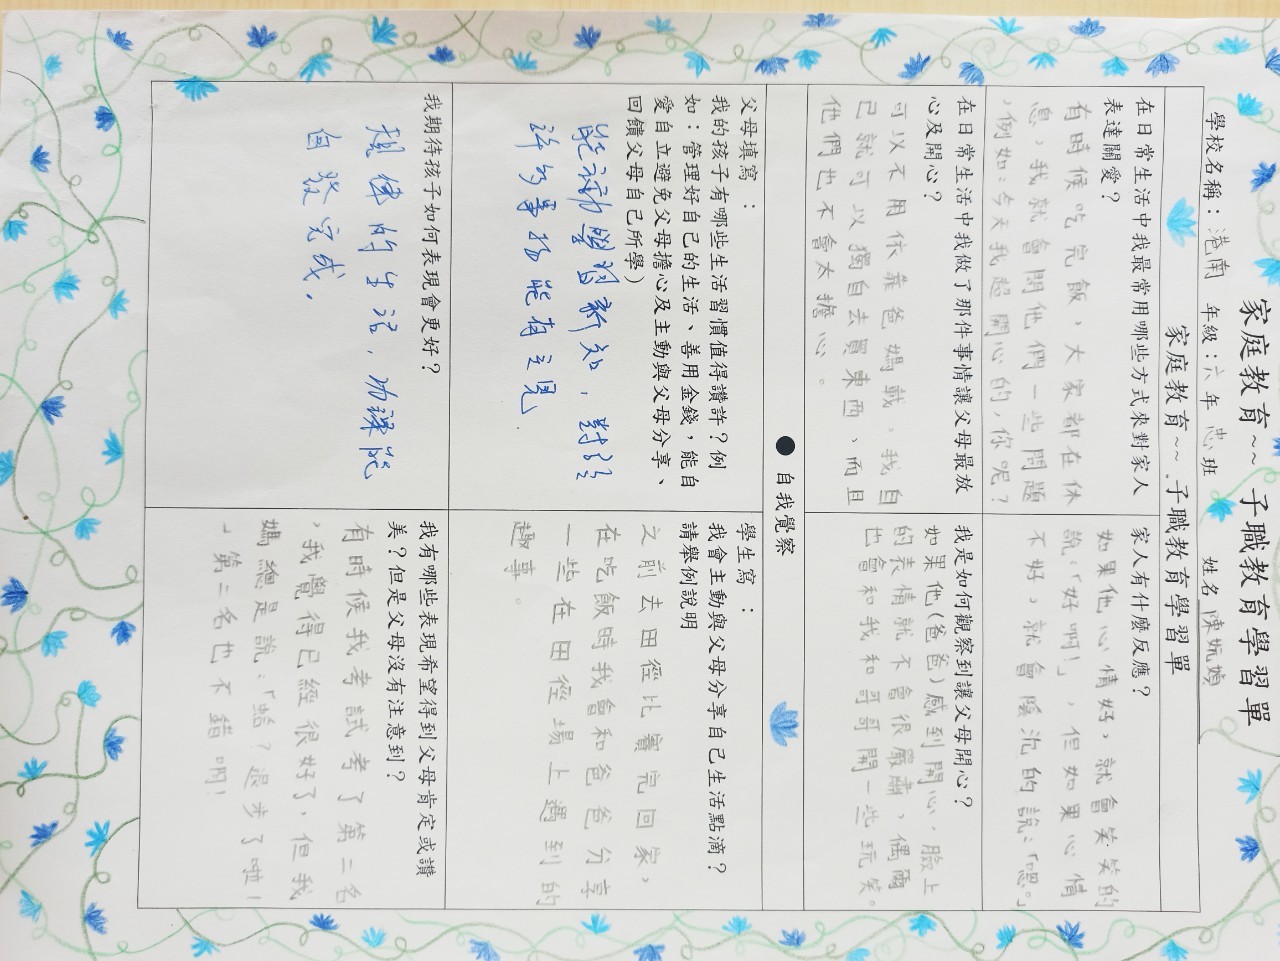 家庭教育~~ 子職教育學習單
學校名稱：港南 年級：六年 忠班 姓名 陳
家庭教育~~ 子職教育學習單
在日常生活中我最常用哪些方式來對家人
表達關愛？
有時候吃完飯，大家都在休
息，我就會問他們一些問題
，例如：今天我超開心的，你呢？
家人有什麼反應？
如果他心情好，就會笑笑的
說：「好啊！」，但如果心情
不好，就會陰沉的說：「嗯。」
在日常生活中我做了那件事情讓父母最放
心及開心？
可以不用依靠爸媽載，我自
己就可以獨自去買東西，而且
他們也不會太擔心。
我是如何觀察到讓父母開心？
如果他(爸爸)感到開心，臉上
的表情就不會很嚴肅，偶爾
也會和我和哥哥開一些玩笑。
● 自我覺察
父母填寫：
我的孩子有哪些生活習慣值得讚許？例
如：管理好自己的生活、善用金錢，能自
愛自立避免父母擔心及主動與父母分享、
回饋父母自己所學)
能主動學習新知，對於
許多事務能有主見.
學生寫：
我會主動與父母分享自己生活點滴？
請舉例說明
之前去田徑比賽完回家，
在吃飯時我會和爸爸分享
一些在田徑場上遇到的
趣事。
我期待孩子如何表現會更好？
規律的生活，功課能
自發完成。
我有哪些表現希望得到父母肯定或讚
美？但是父母沒有注意到？
有時候我考試考了第二名
，我覺得已經很好了，但我
媽總是說：「蛤？退步了啦！
」第二名也不錯啊！